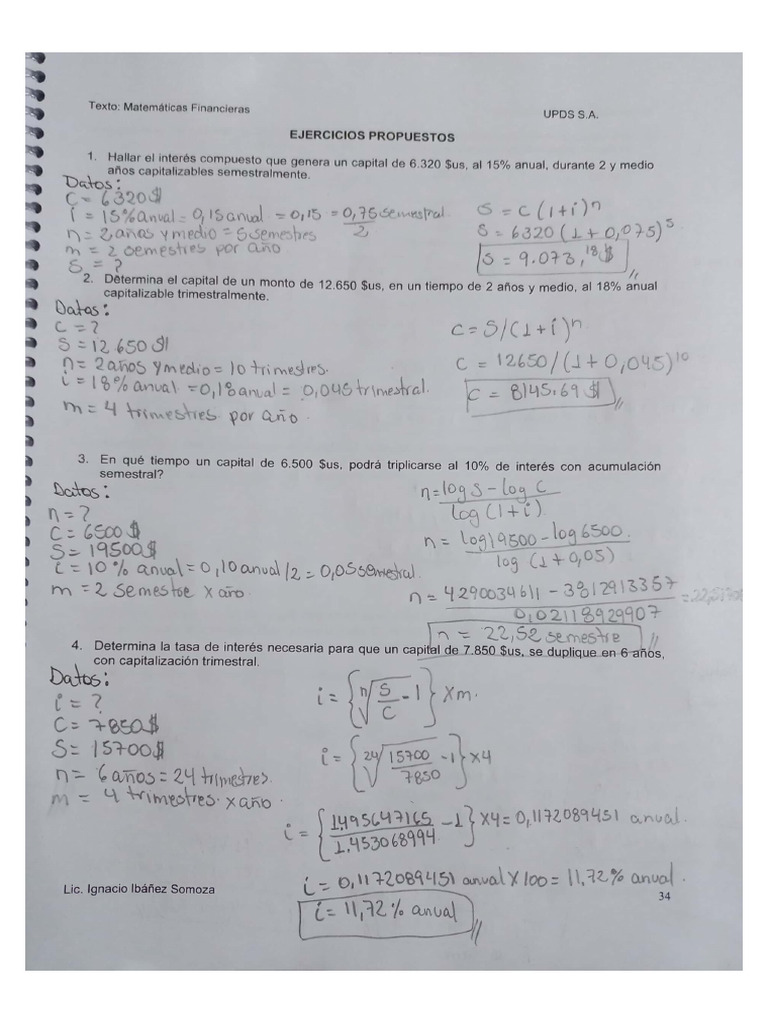 Texto: Matemáticas Financieras
UPDS S.A.
EJERCICIOS PROPUESTOS
1. Hallar el interés compuesto que genera un capital de 6.320 $us, al 15% anual, durante 2 y medio
años capitalizables semestralmente.
Datos:
C = 6320$
i = 15% anual = 0,15 anual = 0,15/2 = 0,75 semestral
n = 2 años y medio = 5 semestres
m = 2 semestres por año
S = ?
S = C (1+i)^n
S = 6320 (1 + 0,075)^5
S = 9.073,18 $
2. Determina el capital de un monto de 12.650 $us, en un tiempo de 2 años y medio, al 18% anual
capitalizable trimestralmente.
Datos:
C = ?
S = 12 650 $
n = 2 años y medio = 10 trimestres.
i = 18% anual = 0,18 anual = 0,045 trimestral.
m = 4 trimestres por año.
C = S/(1+i)^n
C = 12650/(1+0,045)^10
C = 8145.69 $
3. En qué tiempo un capital de 6.500 $us, podrá triplicarse al 10% de interés con acumulación
semestral?
Datos:
n = ?
C = 6500 $
S = 19500 $
i = 10 % anual = 0,10 anual/2 = 0,05 semestral.
m = 2 semestre x año.
n = log S - log C / log (1+i)
n = log 19500 - log 6500 / log (1+0,05)
n = 4290034611 - 3812913357 / 0,02118929907
n = 22,52 semestre
4. Determina la tasa de interés necesaria para que un capital de 7.850 $us, se duplique en 6 años,
con capitalización trimestral.
Datos:
i = ?
C = 7850 $
S = 15700 $
n = 6 años = 24 trimestres.
m = 4 trimestres x año.
i = { n√(S/C) - 1 } x m.
i = { 24√(15700/7850) - 1 } x 4
i = { 1,495647165/1.453068994 - 1 } x 4 = 0,1172089451 anual.
i = 0,1172089451 anual x 100 = 11,72 % anual.
i = 11,72 % anual
Lic. Ignacio Ibáñez Somoza
34